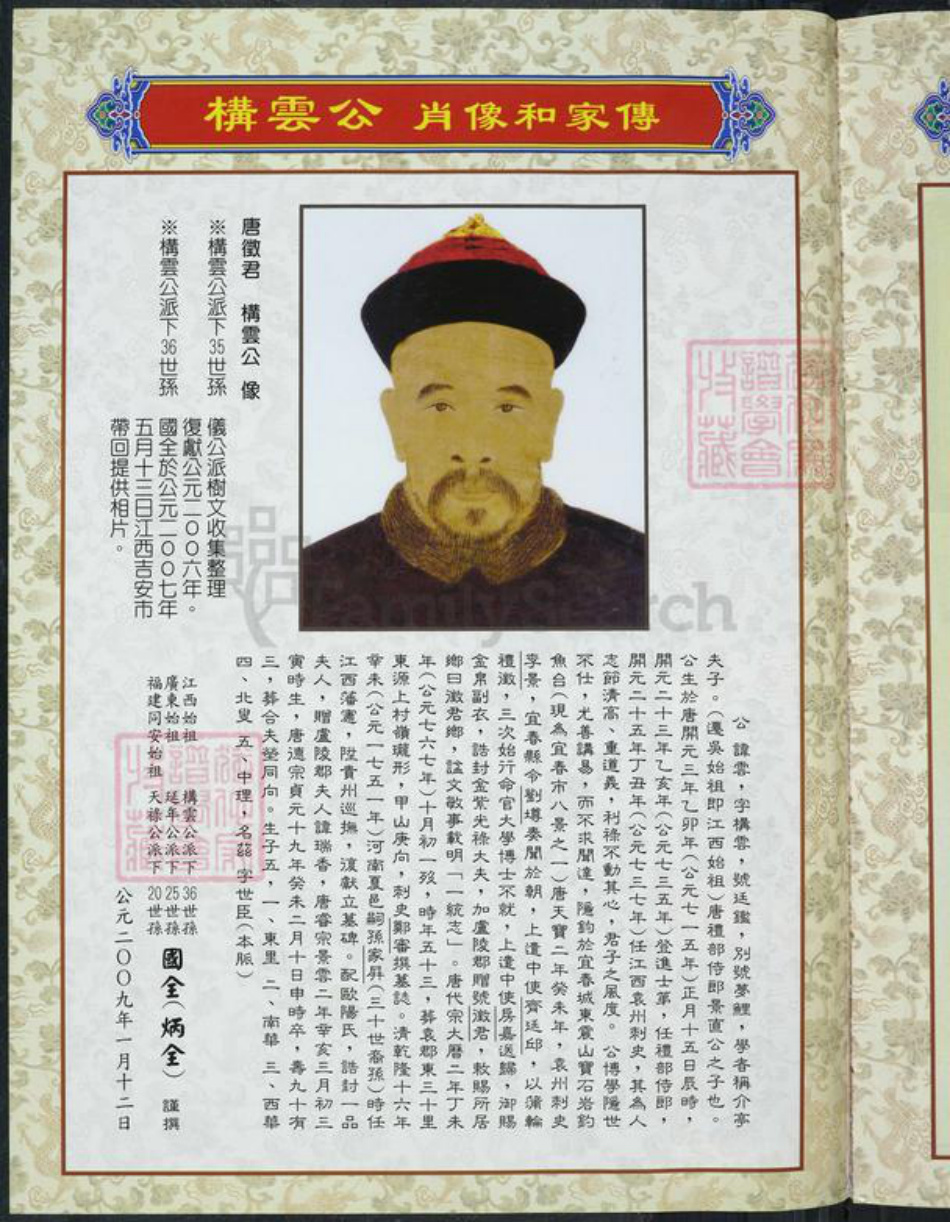 構雲公 肖像和家傳
唐徵君 構雲公 像
※構雲公派下35世孫 儀公派樹文收集整理
復獻公元二〇〇六年。
※構雲公派下36世孫 國全於公元二〇〇七年
五月十三日江西吉安市
帶回提供相片。
公諱雲，字構雲，號廷鑑，別號夢鯉，學者稱介亭
夫子。（遷吳始祖即江西始祖）唐禮部侍郎景直公之子也。
公生於唐開元三年乙卯年（公元七一五年）正月十五日辰時，
開元二十三年乙亥年（公元七三五年）登進士第，任禮部侍郎，
開元二十五年丁丑年（公元七三七年）任江西袁州刺史，其為人
志節清高、重道義，利祿不動其心，君子之風度。公博學隱世
不仕，尤善講易，而不求聞達，隱釣於宜春城東震山寶石岩釣
魚台（現為宜春市八景之一）唐天寶二年癸未年，袁州刺史
李景，宜春縣令劉墫奏聞於朝，上遣中使齊廷邱，以蒲輪
禮徵，三次始行命官大學博士不就，上遣中使房嘉送歸，御賜
金帛副衣，誥封金紫光祿大夫，加盧陵郡贈號徵君，敕賜所居
鄉曰徵君鄉，諡文敏事載明「一統志」。唐代宗大曆二年丁未
年（公元七六七年）十月初一歿，時年五十三，葬袁郡東三十里
東源上村嶺瓏形，甲山庚向，刺史鄭審撰墓誌。清乾隆十六年
辛未（公元一七五一年）河南夏邑嗣孫家屏（三十世裔孫）時任
江西藩憲，陞貴州巡撫，復獻立墓碑。配歐陽氏，誥封一品
夫人，贈盧陵郡夫人諱瑞香，唐睿宗景雲二年辛亥三月初三
寅時生，唐德宗貞元十九年癸未二月十日申時卒，壽九十有
三，葬合夫塋同向。生子五，一、東里 二、南華 三、西華
四、北叟 五、中理，名 字世臣（本脈）
江西始祖 構雲公派下 36世孫
廣東始祖 延年公派下 25世孫 國全（炳全） 謹撰
福建同安始祖 天祿公派下 20世孫
公元二〇〇九年一月十二日
FamilySearch
譜學會